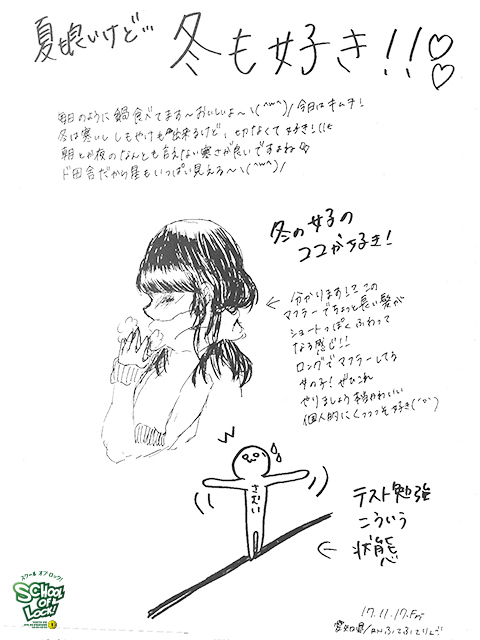 夏良いけど…
冬も好き!!♡♡
毎日のように鍋食べてます〜おいしいよ〜\(^w^)/今日はキムチ!
冬は寒いししもやけも出来るけど、切なくて好き!
朝とか夜のなんとも言えない寒さが良いですよね
ド田舎だから星もいっぱい見える〜\(^w^)/
冬の女子の
ココが好き!
← 分かります!?この
マフラーでちょっと長い髪が
ショートっぽくふわって
なる感じ!!
ロングでマフラーしてる
女の子!ぜひこれ
やりましょう かわいい
個人的にくっっっそ好き
さむい
テスト勉強
こういう
← 状態
スクールオブロック!
SCHOOL
OF
LOCK!
17.11.17.Fri
愛知県/RN ふてふてりんご